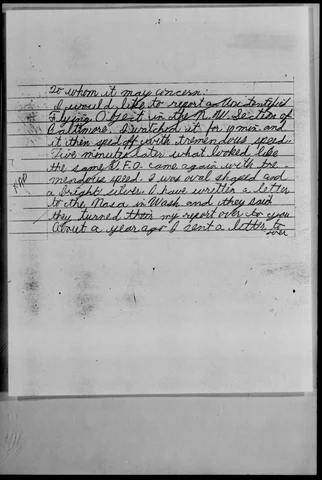 To whom it may concern:
I would like to report an Unidentified
Flying Object in the N.W. Section of
Baltimore. I watched it for 10 min and
it then sped off with tremendous speed.
Five minutes later what looked like
the same U.F.O. came again with tre-
mendous speed. I was oval shaped and
a bright silver. I have written a letter
to the Nasa in Wash and they said
they turned this my report over to you
About a year ago I sent a letter to
over